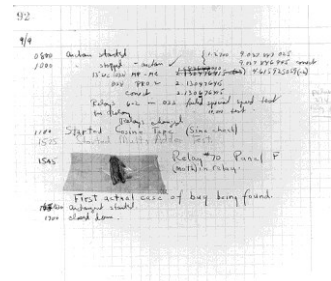 92
9/9
0800 Antan started
1000 " stopped - antan ✓
13"UC (032) MP-MC
(033) PRO 2 2.130476415
correct 2.130676415
Relays 6-2 in 033 failed special speed test
in Relay
Relays changed
1100 Started Cosine Tape (Sine check)
1525 Started Multy Adder Test.
1545 Relay #70 Panel F
(Moth) in relay.
First actual case of bug being found.
antangent started.
1700 closed down.